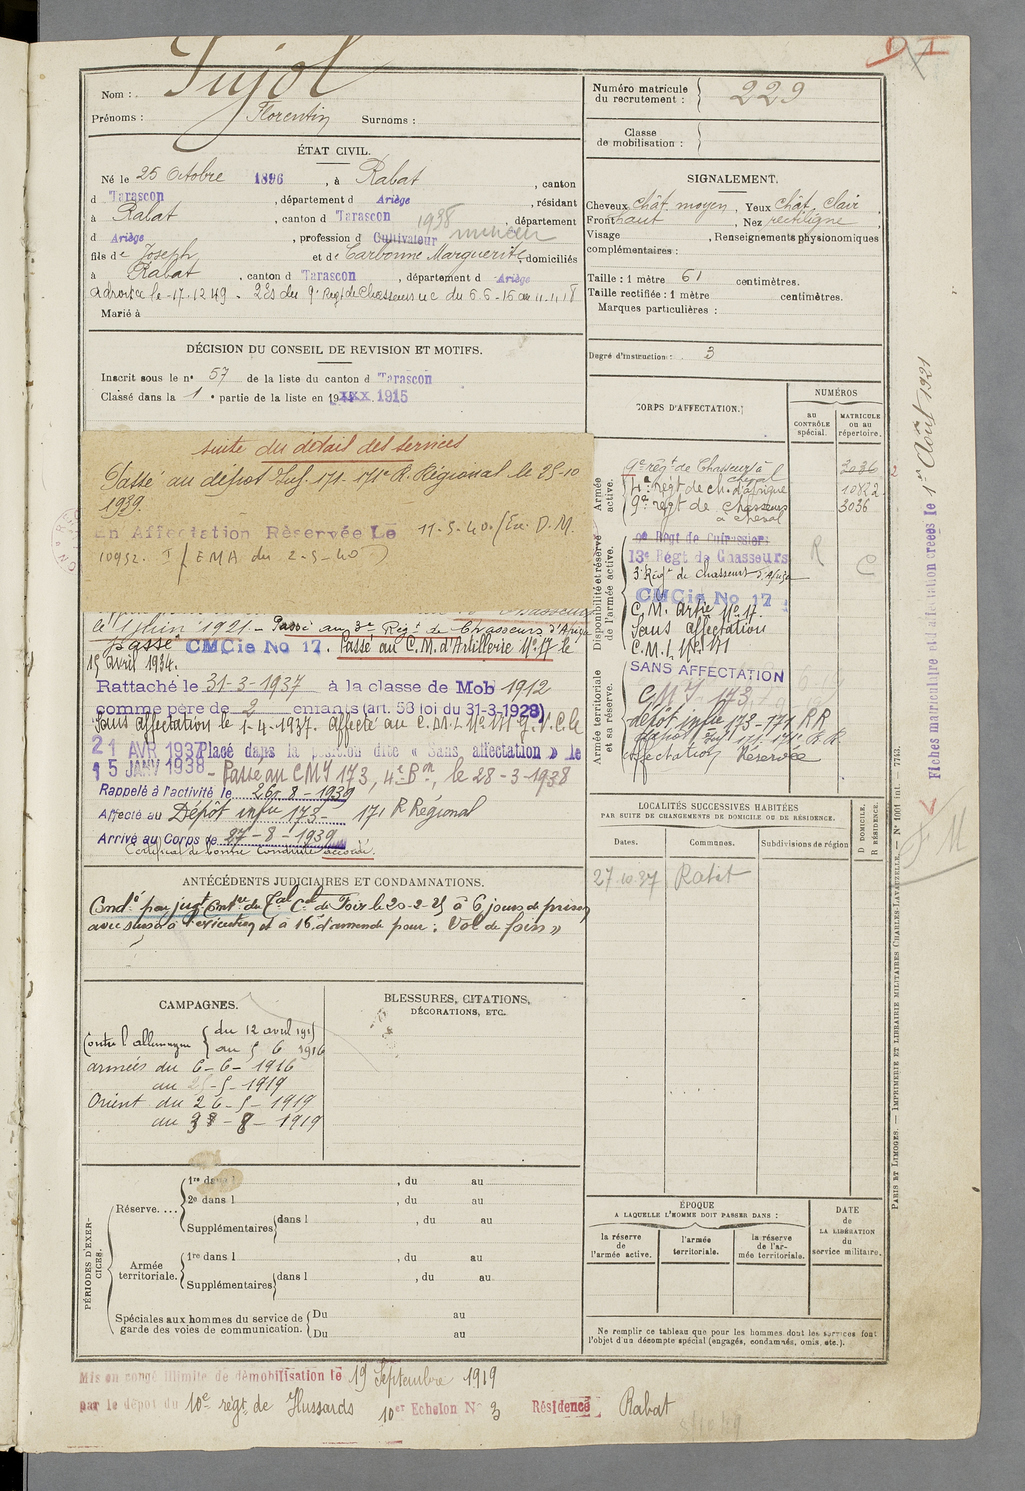 D I
Nom : Pujol
Prénoms : Florentin Surnoms :
Numéro matricule du recrutement : 229
Classe de mobilisation :
ÉTAT CIVIL.
Né le 25 Octobre 1896, à Rabat, canton
d Tarascon, département d Ariège, résidant
à Rabat, canton d Tarascon, département
d Ariège, profession d Cultivateur 1938
fils de Joseph et de Carbonne Marguerite, domiciliés
à Rabat, canton d Tarascon, département d Ariège
a droit à ce le 17.12.49. du 9e Regt de Chasseurs uc du 6.6.16 au 11.11.18
Marié à
SIGNALEMENT.
Cheveux Chât. moyen, Yeux Chât. Clair,
Front haut, Nez rectiligne,
Visage , Renseignements physionomiques
complémentaires :
Taille : 1 mètre 61 centimètres.
Taille rectifiée : 1 mètre centimètres.
Marques particulières :
Degré d'instruction : 3
DÉCISION DU CONSEIL DE REVISION ET MOTIFS.
Inscrit sous le n° 57 de la liste du canton d Tarascon
Classé dans la 1e partie de la liste en 19xxx 1915
suite du détail des services
Passé au dépôt Inf. 171-171e R. Régional le 25-10
1939
En Affectation Réservée Le 11-5-40 / En. D.M.
10952. T / EMA du 2-5-40)
le 1 Juin 1921 - Passé au 3e Régt de Chasseurs d'Afrique
passé CMCie No 17. Passé au C.M. d'Artillerie No 17 le
15 Avril 1934.
Rattaché le 31-3-1937 à la classe de Mob 1912
comme père de 2 enfants (art. 58 loi du 31-3-1928)
Sans affectation le 1-4-1937. affecté au C.M.I. No 171 G.V.C. le
21 AVR 1937 Placé dans la position dite « Sans affectation » le
15 JANV 1938 - Passé au CMI 173, 4e Bon, le 28-3-1938
Rappelé à l'activité le 26-8-1939
Affecté au Dépôt infie 173- 171 R Régional
Arrivé au Corps le 27-8-1939
Certificat de bonne conduite accordé.
CORPS D'AFFECTATION.
NUMÉROS
AU CONTRÔLE spécial.
MATRICULE ou au répertoire.
Armée active.
9e régt de Chasseurs à cheval 3036
4e Régt de ch. d'afrique 1022
9e régt de chasseurs à cheval 3036
Disponibilité et réserve de l'armée active.
9e Régt de Cuirassiers
13e Régt de Chasseurs R C
3e Régt de Chasseurs d'Afrique
CMCie No 17
C.M. Artie No 17
Sans affectation
C.M.I. No 171
Armée territoriale et sa réserve.
SANS AFFECTATION
CMI 173
dépôt infie 173-171 RR
dépôt Inf 171-171e R.R.
affectation Réservée
Fiches matriculaire et d'affectation créées le 1er Août 1921
F M
LOCALITÉS SUCCESSIVES HABITÉES
PAR SUITE DE CHANGEMENTS DE DOMICILE OU DE RÉSIDENCE.
Dates. Communes. Subdivisions de région D DOMICILE. R RÉSIDENCE.
27.10.37 Rabat
ANTÉCÉDENTS JUDICIAIRES ET CONDAMNATIONS.
Condé par jugt contre du Tal Cel de Foix le 20-2-25 à 6 jours de prison
avec sursis à l'exécution et à 16f d'amende pour : Vol de foin »
CAMPAGNES.
Contre l'allemagne du 12 avril 1915
au 5 6 1916
armées du 6-6-1916
au 25-5-1919
Orient du 26-5-1919
au 31-8-1919
BLESSURES, CITATIONS,
DÉCORATIONS, ETC.
PÉRIODES D'EXERCICES.
Réserve....
1re dans l , du au
2e dans l , du au
Supplémentaires dans l , du au
Armée territoriale.
1re dans l , du au
Supplémentaires dans l , du au
Spéciales aux hommes du service de garde des voies de communication.
Du au
Du au
ÉPOQUE
A LAQUELLE L'HOMME DOIT PASSER DANS :
la réserve de l'armée active.
l'armée territoriale.
la réserve de l'armée territoriale.
DATE de LA LIBÉRATION du service militaire.
Ne remplir ce tableau que pour les hommes dont les services font
l'objet d'un décompte spécial (engagés, condamnés, omis, etc.).
PARIS ET LIMOGES. — IMPRIMERIE ET LIBRAIRIE MILITAIRES CHARLES-LAVAUZELLE. — N° 1001 int. — 7743.
Mis en congé illimité de démobilisation le 19 Septembre 1919
par le dépôt du 10e régt de Hussards 10er Echelon N° 3 Résidence Rabat